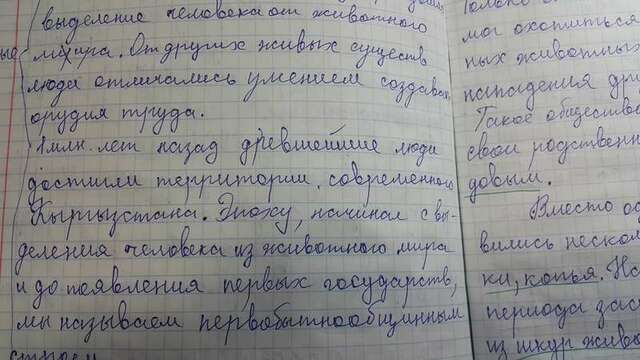 выделение человека от животного
мира. От других живых существ
люди отличались умением создавать
орудия труда.
1 млн. лет назад древнейшие люди
достигли территории современного
Кыргызстана. Эпоху, начиная с вы-
деления человека из животного мира
и до появления первых государств,
мы называем первобытнообщинным
строем
мог охотиться
ных животных
нападения др
Такое общество
свои родствен
довым.
Вместо
вились неско
ки, копья. Ис
периода